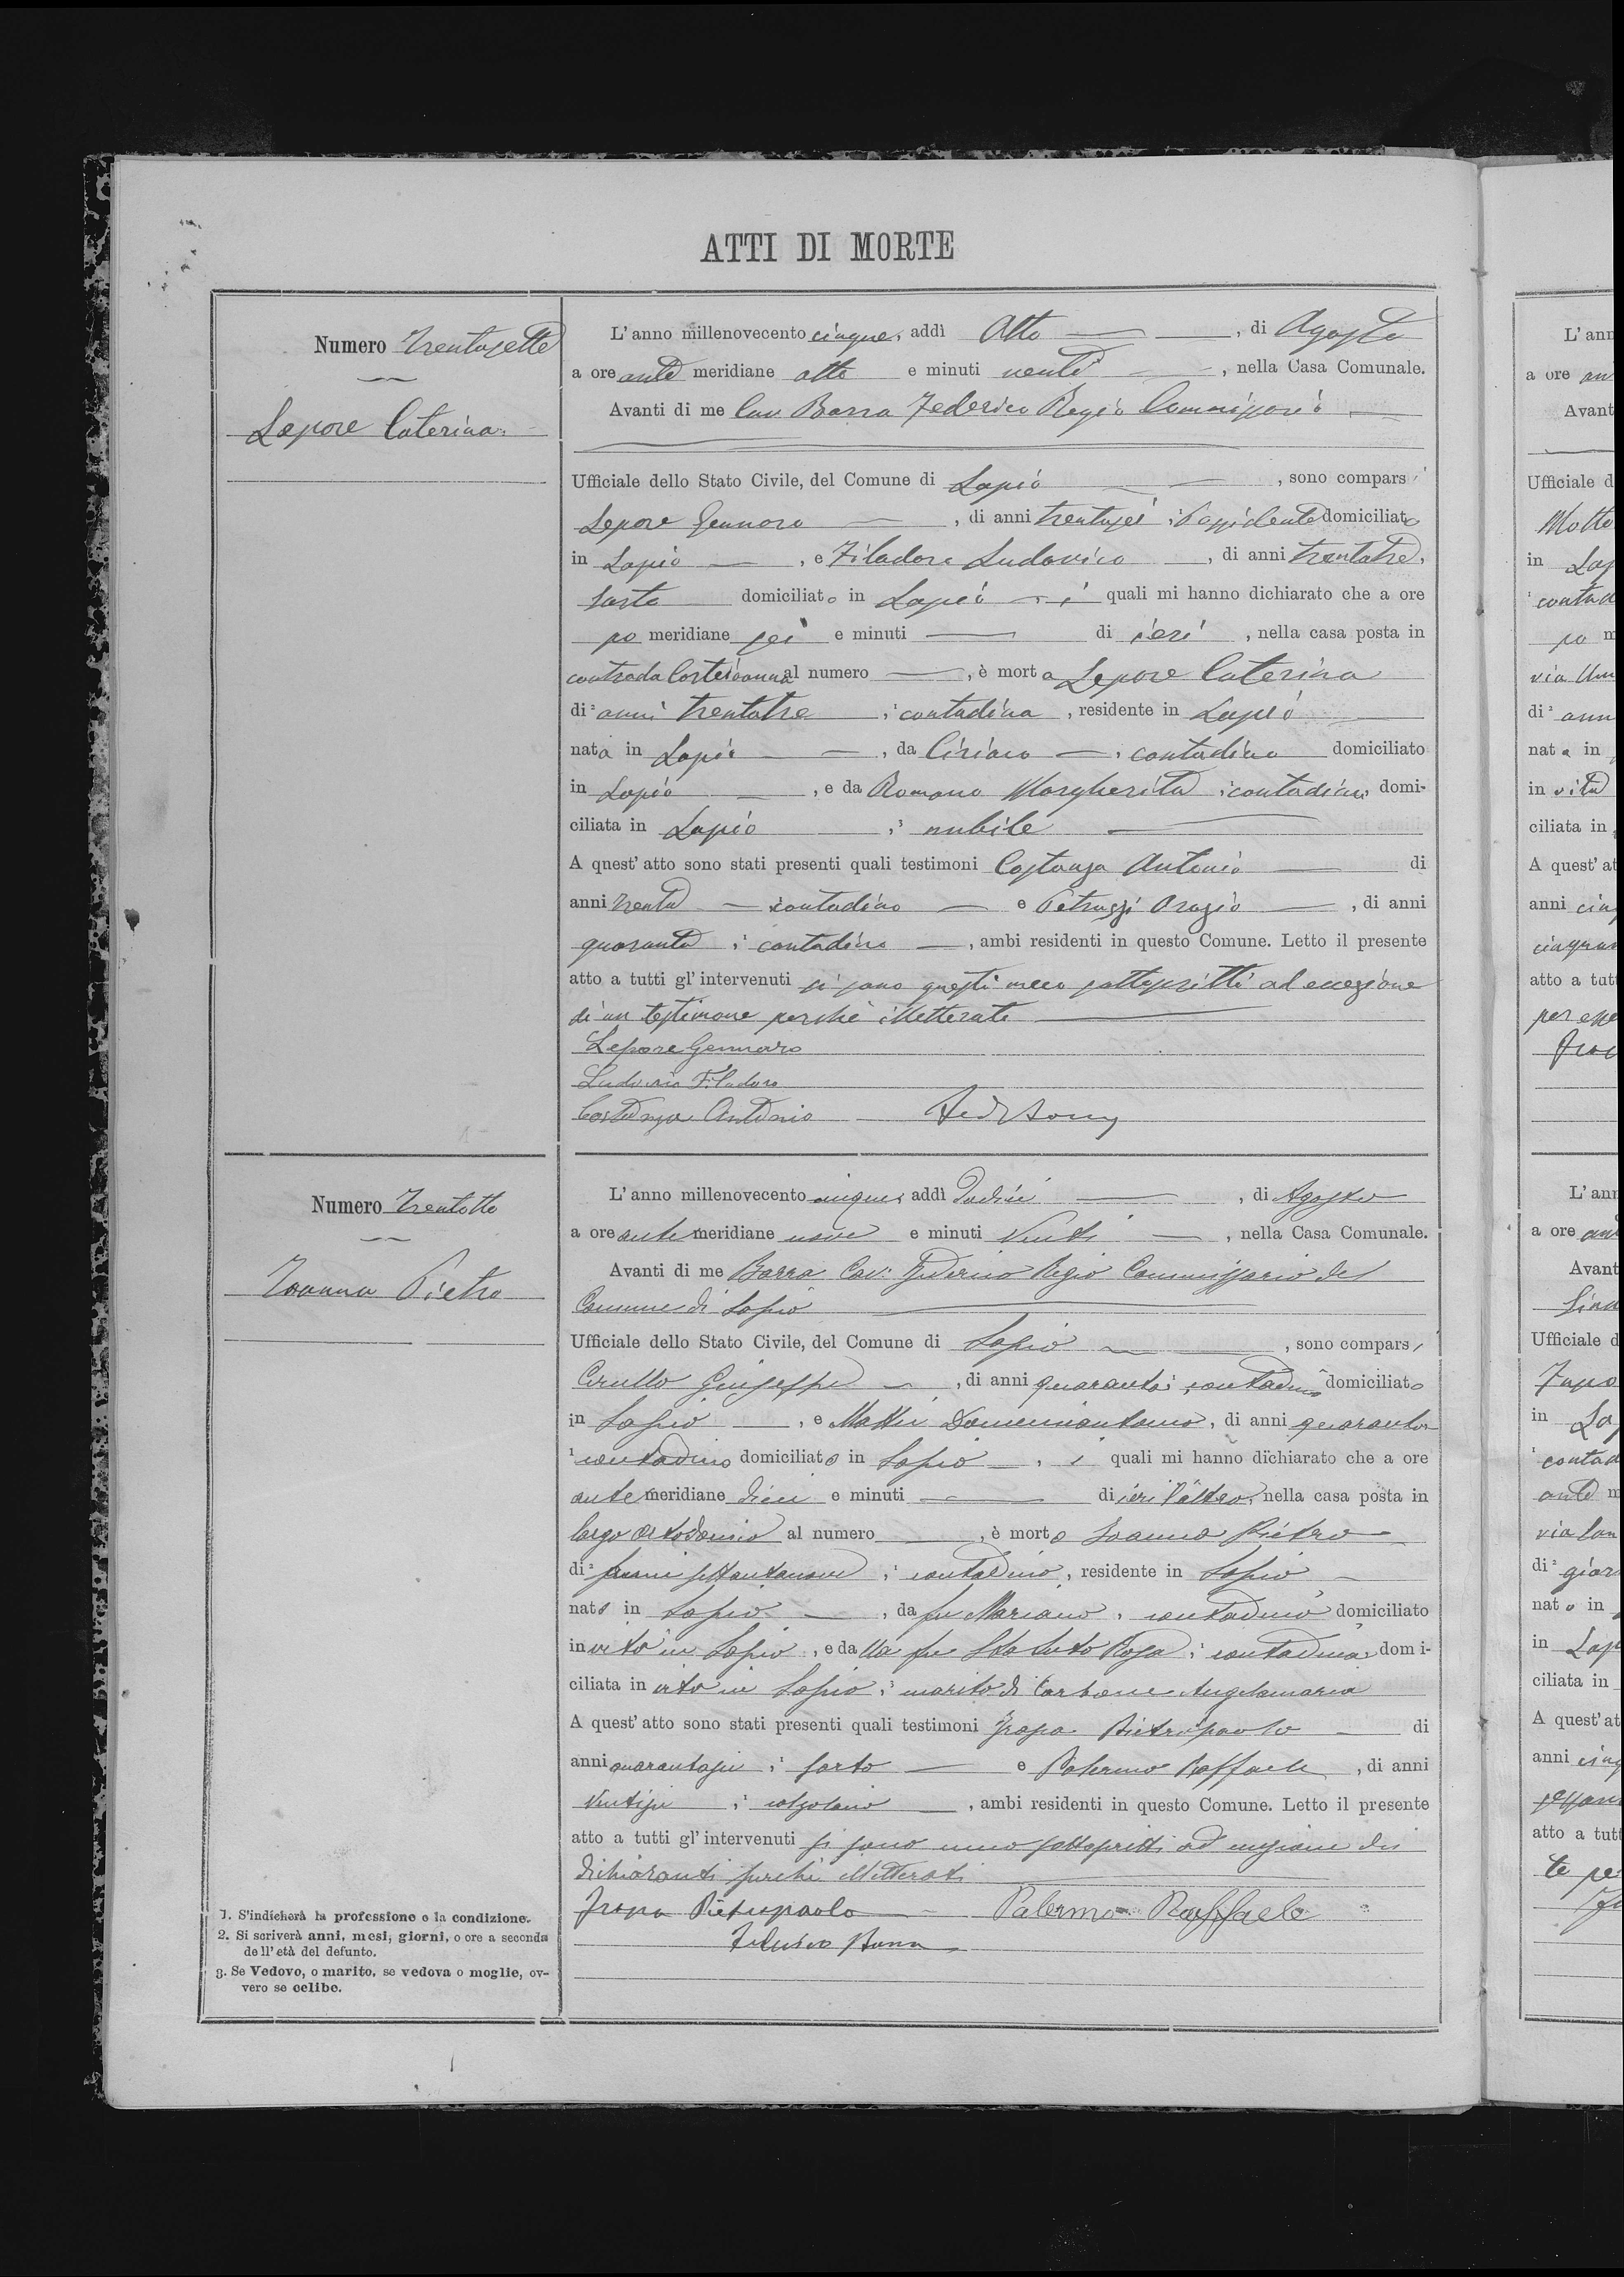 ATTI DI MORTE
Numero Trentasette
Lepore Caterina
L'anno millenovecento cinque, addì Otto, di Agosto
a ore ante meridiane otto e minuti venti, nella Casa Comunale.
Avanti di me Cav. Barra Federico Regio Commissario
Ufficiale dello Stato Civile, del Comune di Lapio, sono comparsi
Lepore Gennaro, di anni trentasei, Possidente domiciliato
in Lapio, e Filadoro Ludovico, di anni trentatre,
sarto domiciliato in Lapio, i quali mi hanno dichiarato che a ore
po meridiane sei e minuti di ieri, nella casa posta in
contrada al numero, è morta Lepore Caterina
di anni trentatre, contadina, residente in Lapio
nata in Lapio, da Ciriaco, contadino domiciliato
in Lapio, e da Romano Margherita, contadina, domi-
ciliata in Lapio, nubile
A quest'atto sono stati presenti quali testimoni Costanza Antonio di
anni trenta contadino e Petruzzi Orazio, di anni
quaranta, contadino, ambi residenti in questo Comune. Letto il presente
atto a tutti gl'intervenuti si sono questi meco sottoscritti ad eccezione
di un testimone perchè illetterato
Lepore Gennaro
Ludovico Filadoro
Costanza Antonio
Numero Trentotto
Ioanna Pietro
L'anno millenovecento cinque, addì Dodici, di Agosto
a ore ante meridiane nove e minuti Venti, nella Casa Comunale.
Avanti di me Barra Cav. Federico Regio Commissario del
Comune di Lapio
Ufficiale dello Stato Civile, del Comune di Lapio, sono comparsi
Cirullo Giuseppe, di anni quaranta, contadino domiciliato
in Lapio, e Mattei Domenicantonio, di anni quaranta
contadino domiciliato in Lapio, i quali mi hanno dichiarato che a ore
ante meridiane dieci e minuti di ieri l'altro, nella casa posta in
largo al numero, è morto Ioanna Pietro
di anni settantanove, contadino, residente in Lapio
nato in Lapio, da fu Mariano, contadino domiciliato
in vita in Lapio, e da lla fu Rosa, contadina, domi-
ciliata in vita in Lapio, marito di Carbone Angelamaria
A quest'atto sono stati presenti quali testimoni Grapa Pietropaolo di
anni quarantasei, sarto e Palermo Raffaele, di anni
Ventisei, calzolaio, ambi residenti in questo Comune. Letto il presente
atto a tutti gl'intervenuti si sono meco sottoscritti ad eccezione dei
dichiaranti perchè illetterati
Pietropaolo Palermo Raffaele
Federico Barra
1. S'indicherà la professione o la condizione.
2. Si scriverà anni, mesi, giorni, o ore a seconda
dell'età del defunto.
3. Se Vedovo, o marito, se vedova o moglie, ov-
vero se celibe.